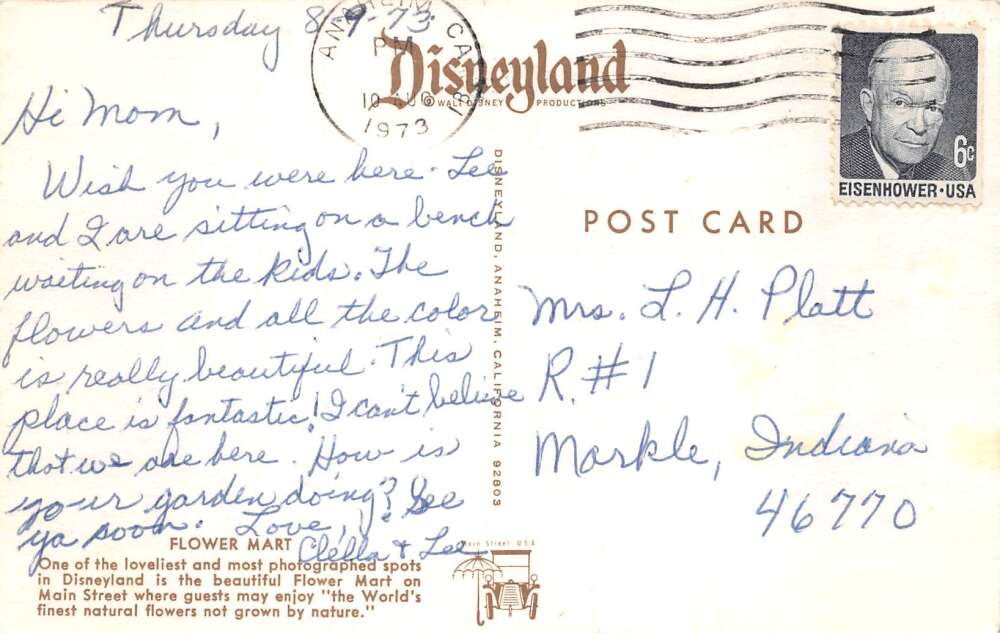 Thursday 8-9-73
ANAHEIM, CA
PM
10 AUG
1973
Disneyland
© WALT DISNEY PRODUCTIONS
6c
EISENHOWER·USA
Hi Mom,
Wish you were here. Lee
and I are sitting on a bench
waiting on the kids. The
flowers and all the color
is really beautiful. This
place is fantastic! I can't believe
that we are here. How is
your garden doing? See
ya soon. Love,
Clella & Lee
DISNEYLAND, ANAHEIM, CALIFORNIA 92803
POST CARD
Mrs. L. H. Platt
R. #1
Markle, Indiana
46770
FLOWER MART
One of the loveliest and most photographed spots
in Disneyland is the beautiful Flower Mart on
Main Street where guests may enjoy "the World's
finest natural flowers not grown by nature."
Main Street U.S.A